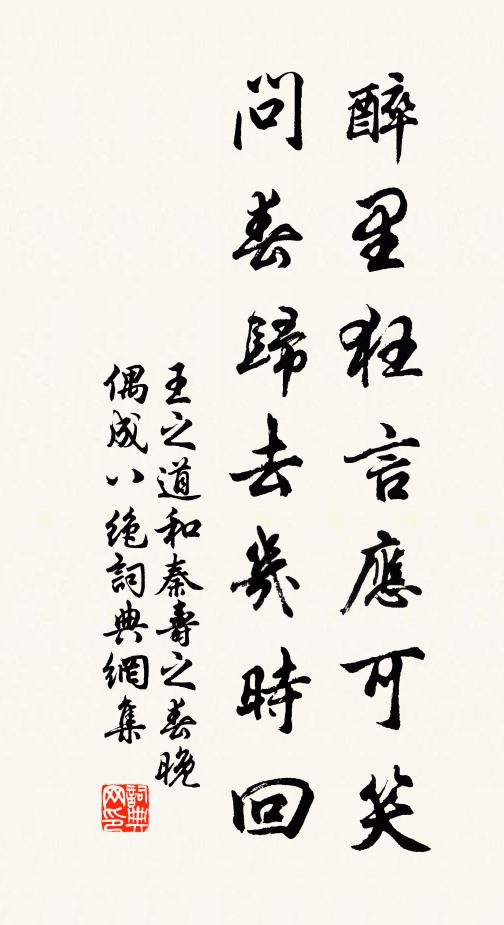 醉里狂言應可笑
問春歸去幾時回
王之道和秦壽之春晚
偶成八絶詞典網集
詞典
网印